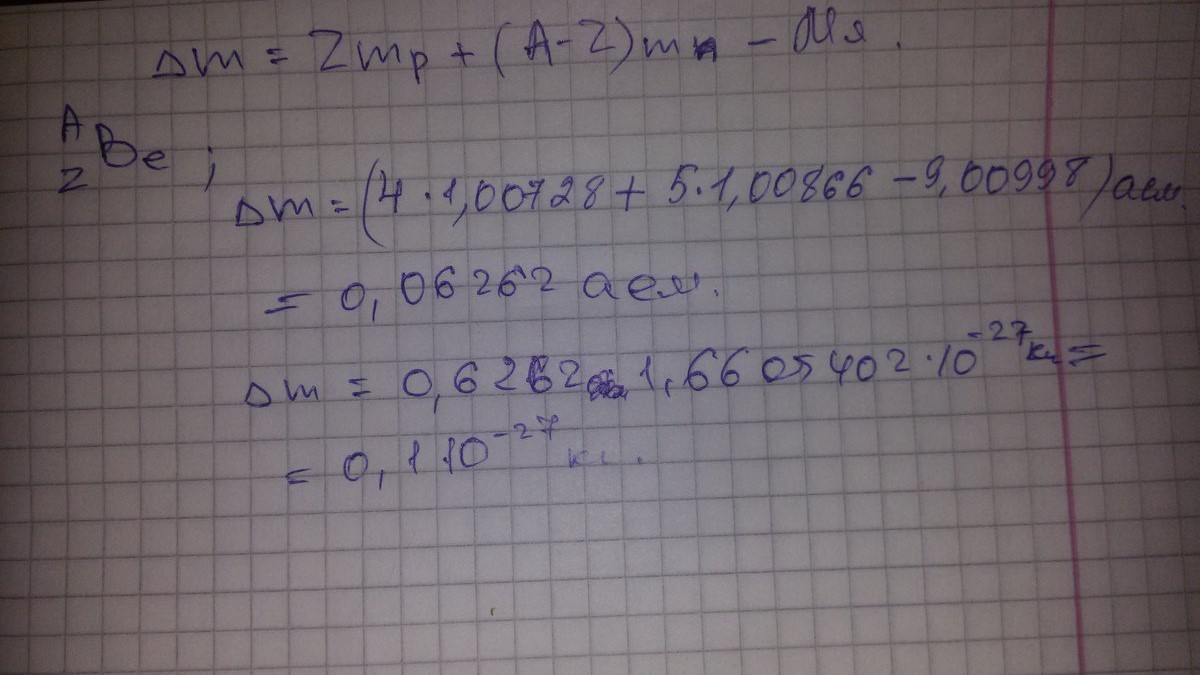 Δm = Zmp + (A-Z)mn - Mя.
A
Z Be ;
Δm = (4·1,00728 + 5·1,00866 - 9,00998) аем.
= 0,06262 аем.
Δm = 0,6262 1,6605402·10⁻²⁷ кг =
= 0,1 10⁻²⁷ кг.